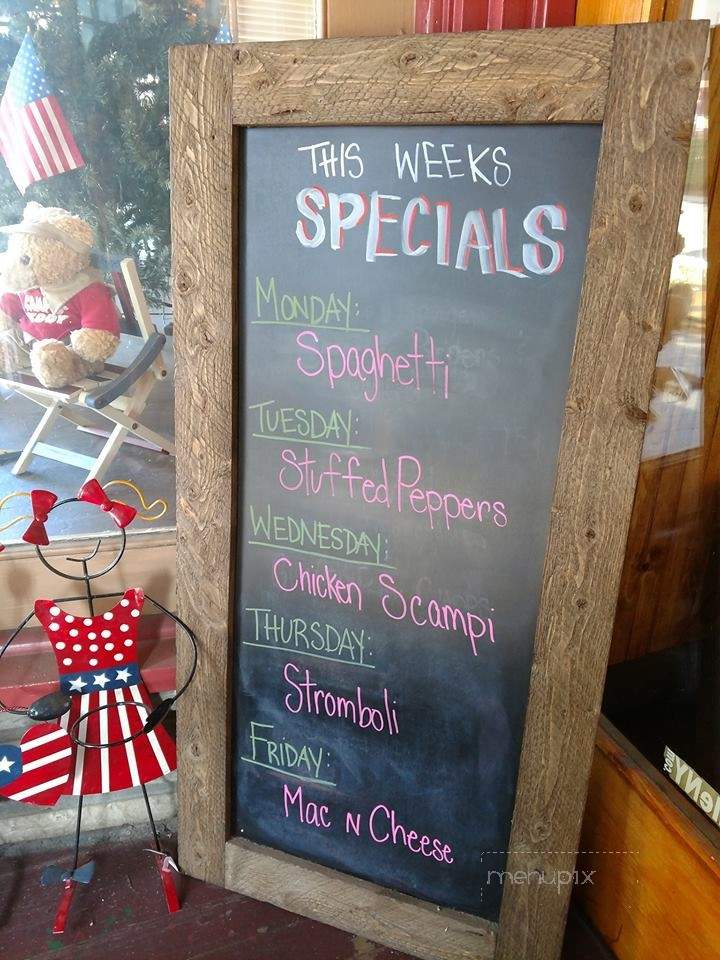 THIS WEEKS
SPECIALS
MONDAY:
Spaghetti
TUESDAY:
Stuffed Peppers
WEDNESDAY:
Chicken Scampi
THURSDAY:
Stromboli
FRIDAY:
Mac N Cheese
menupix